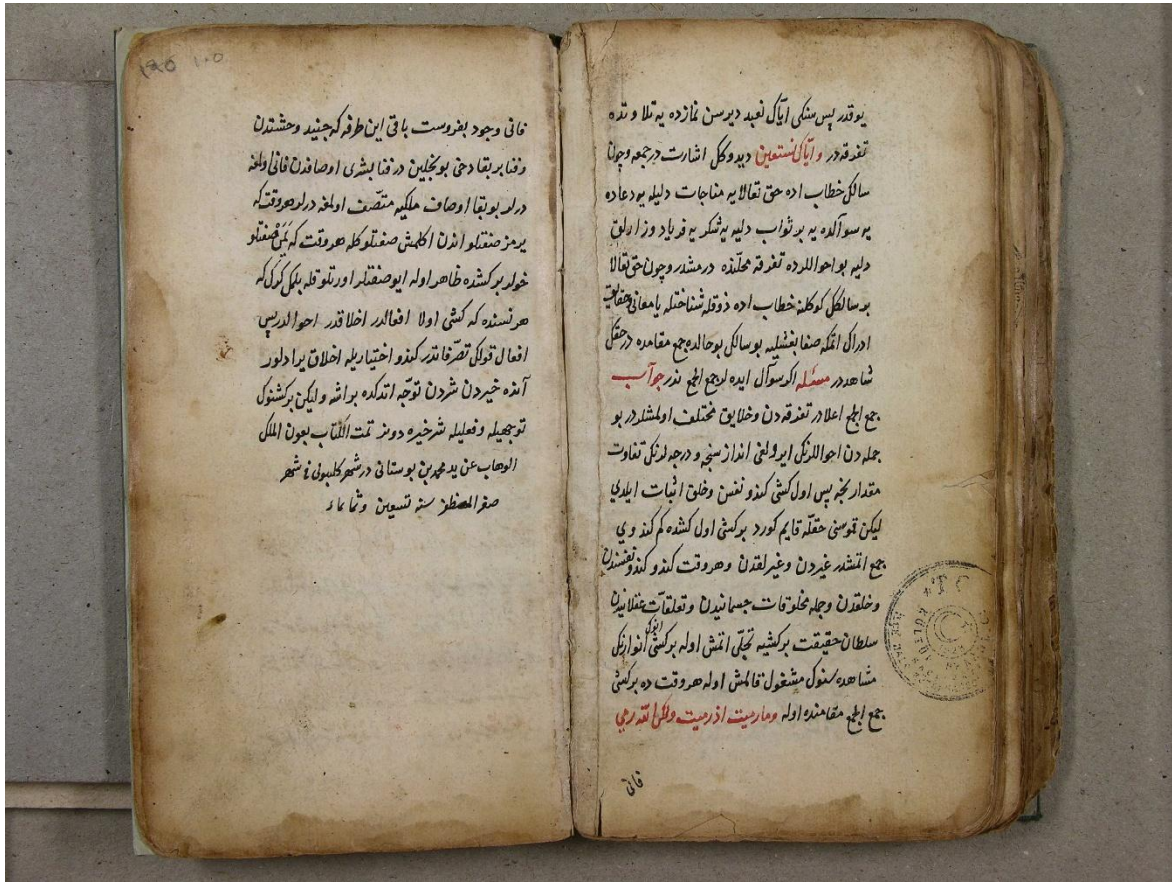 يوقدر پس سنكى اياك نعبد ديرسن نمازده يه تلاوتده
تفرقه در و اياك نستعين ديدوكل اشارت در جمعه وچون
سالك خطاب اده حق تعالايه مناجات دليله يه دعاده
يه سوآلده يه بر ثواب دليه يه شكر يه فرياد وزارلق
دليه بو احوالرده تفرقه محلنده درمشدر وچون حق تعالا
بو سالكك كوكلنه خطاب اده ذوقله شناختله يا معانى وحقايق
ادراك اتمكه صفا بغشليه بو سالك بو حالده جمع مقامده در حقك
شاهدر مسئله اكر سوآل ايده لر جمع الجمع ندر جوآب
جمع الجمع اعلادر تفرقه دن وخلايق مختلف اولمشلردر بو
جمله دن احوالرنك ايرولغى اندازسنجه ودرجه لرنك تفاوت
مقدارنجه پس اول كشى كندو نفسن وخلق اثبات ايلدى
ليكن قموسنى حقله قايم كورد بر كشى اول كشده كم كندوي
جمع اتمشدر غيردن وغيرلقدن وهر وقت كندو كندو نفسندن
وخلقدن وجمله مخلوقات جسمانيدن وتعلقات عقلانيدن
سلطان حقيقت بر كشيه تجلى اتمش اوله بر كشى انوك انوارنك
مشاهده سنوك مشغول قالمش اوله هر وقت ده بر كشى
جمع الجمع مقامنده اوله ومارميت اذ رميت ولكن الله رمي
فانى
١٠٥
فانى وجود بفروست باقى اين طرفه كه جنيد وحشتدن
وفنا بر بقا دخى بونجلين در فنا بشرى اوصافدن فانى اولمغه
درلر بو بقا اوصاف ملكيه متصف اولمغه درلر هر وقت كه
يرمز صفتلو اندن اكلمش صفتلو كله هر وقت كه صفتلو
خولر بر كشده ظاهر اوله ايو صفتلر اورتلو قله بلمك كرك كه
هر نسنده كه كشى اولا افعالدر اخلاقدر احوالدر پس
افعال قولك تصرفاتدر كندو اختياريله اخلاق يرادلور
آنده خيردن شردن توجه اتدكده بو اشه وليكن بر كشنوك
توجهيله وفعليله شر خيره دونر تمت الكتاب بعون الملك
الوهاب عن يد محمد بن بوستانى در شهر كليبولى فى شهر
صفر المظفر سنه تسعين وثمانمائه